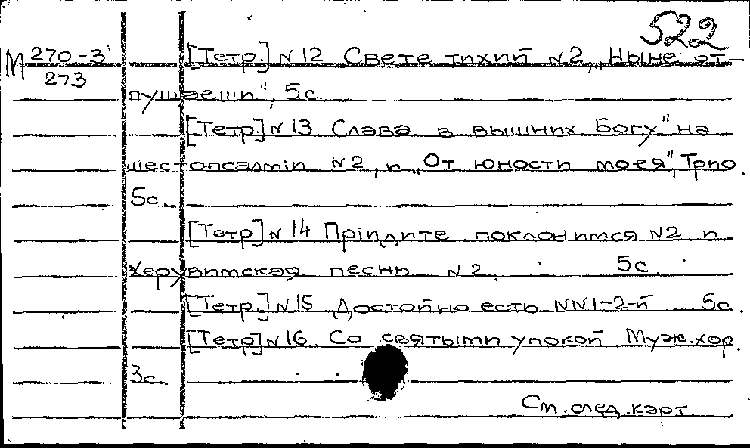 522
М 270-3
273
[Тетр.] №12 Свете тихий №2, „Ныне от-
пущаеши", 5с
[Тетр.] №13 Слава в вышних Богу" на
шестопсалмiи №2, и „От юности моея", Трио.
5с.
[Тетр.] №14 Прiидите поклонимся №2 и
Херувимская песнь №2. 5с.
[Тетр.] №15 Достойно есть NN1-2-й 5с.
[Тетр.] №16. Со святыми упокой Муж.хор.
3с.
См.след.карт